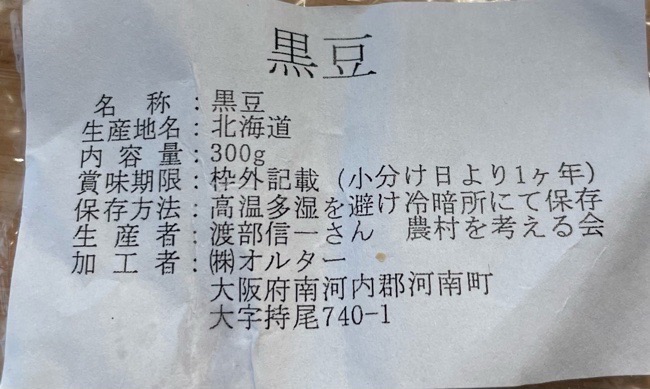 黒豆
名称:黒豆
生産地名:北海道
内容量:300g
賞味期限:枠外記載(小分け日より1ヶ年)
保存方法:高温多湿を避け冷暗所にて保存
生産者:渡部信一さん 農村を考える会
加工者:㈱オルター
大阪府南河内郡河南町
大字持尾740-1